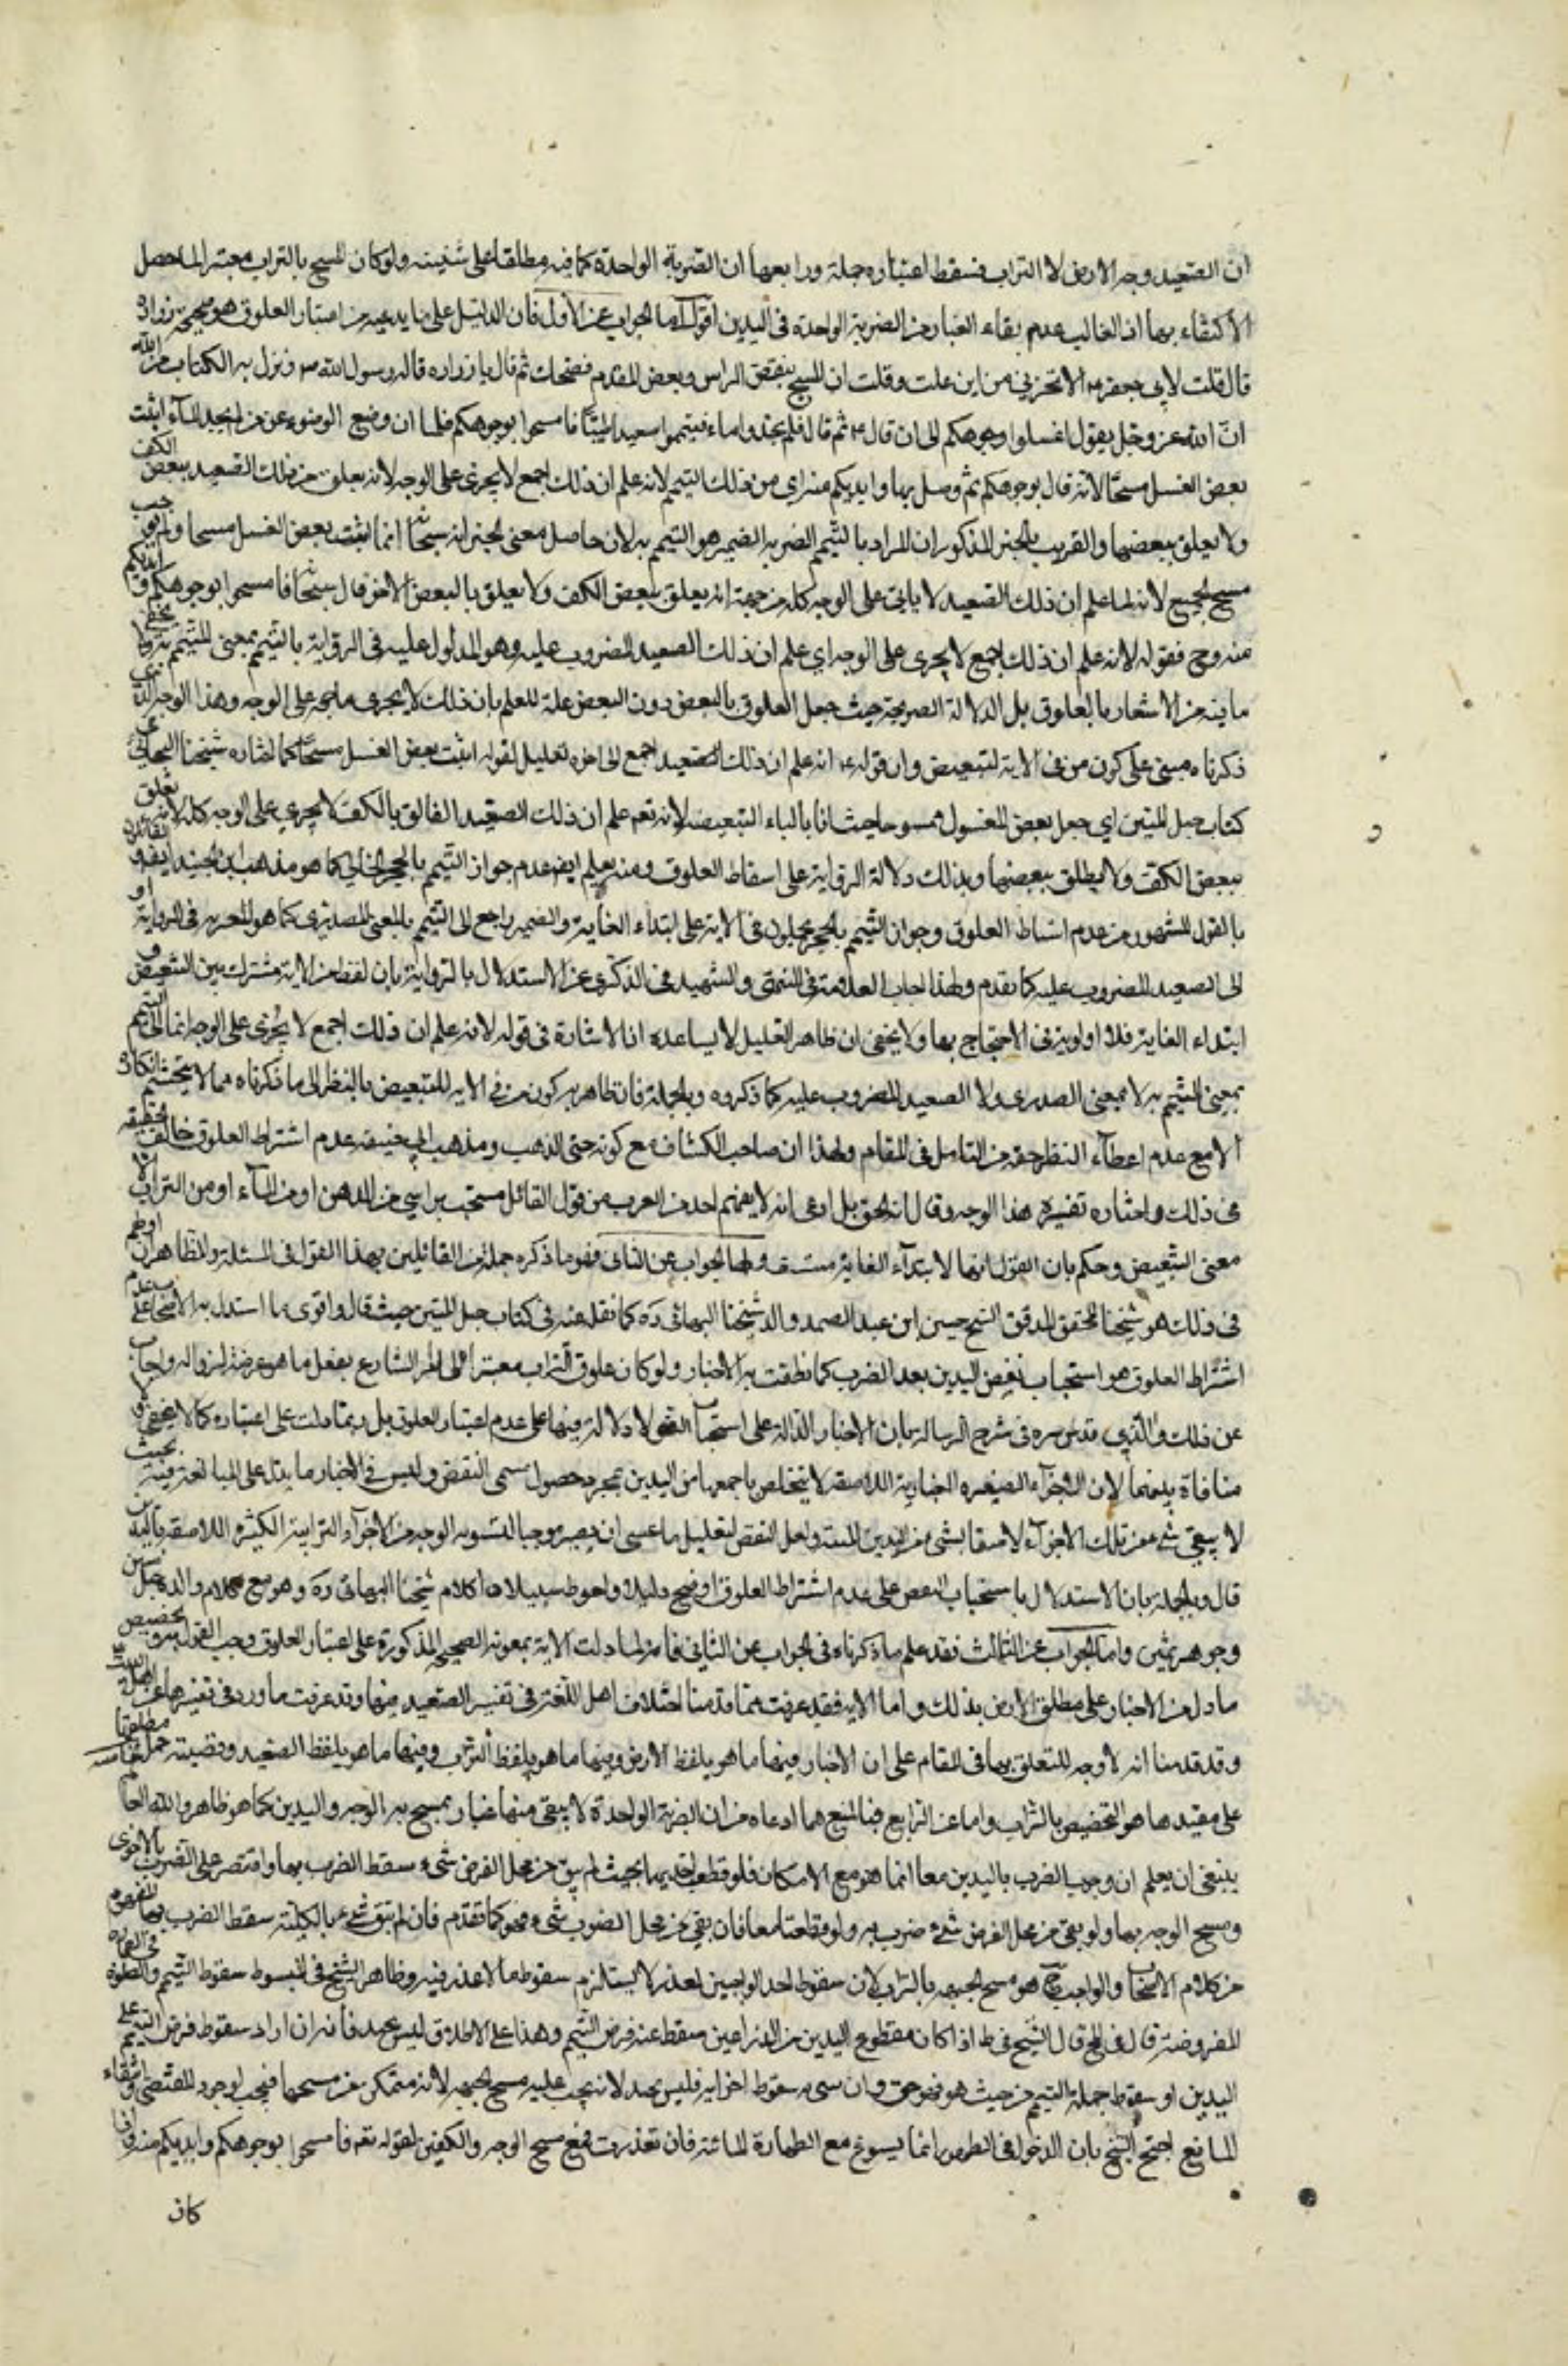 ان الصعيد وجه الارض لا التراب فسقط اعتباره جملة ورابعها ان الضربة الواحدة كافيه مطلقا على ولو كان المسح بالتراب معتبرا لما حصل
الاكتفاء بها اذ الغالب عدم بقاء الغبار من الضربة الواحدة فى اليدين اقول اما الجواب عن الاول فان الدليل على ما يدعيه من اعتبار العلوق هو صحيحة زراره
قال قلت لابى جعفر ع الا تخبرنى من اين علمت وقلت ان المسح ببعض الراس وبعض القدم فضحك ثم قال يا زراره قاله رسول الله ص ونزل به الكتاب من الله
ان الله عز وجل يقول اغسلوا وجوهكم الى ان قال ع ثم قال فلم تجدوا ماء فتيمموا صعيدا طيبا فامسحوا بوجوهكم فلما ان وضع الوضوء عن من لم يجد الماء اثبت
بعض الغسل مسحا لانه قال بوجوهكم ثم وصل بها وايديكم منه اى من ذلك التيمم لانه علم ان ذلك اجمع لا يجرى على الوجه لانه يعلق من ذلك الصعيد ببعض الكف
ولا يعلق ببعضها والقريب بالخبر المذكور ان المراد بالتيمم الضمير هو التيمم به لان حاصل معنى الخبر انه سبحانه انما اثبت بعض الغسل مسحا ولم يوجب
مسح الجميع لانه لما علم ان ذلك الصعيد لا ياتى على الوجه كله من جهة انه يعلق ببعض الكف ولا يعلق بالبعض الاخر قال سبحانه فامسحوا بوجوهكم وايديكم
منه وح فقوله لانه علم ان ذلك اجمع لا يجرى على الوجه اى علم ان ذلك الصعيد المضروب عليه وهو المدلول عليه فى الرواية بالتيمم بمعنى المتيمم به ولا يخفى
ما فيه من الاشعار بالعلوق بل الدلالة الصريحة حيث جعل العلوق بالبعض دون البعض علة للعلم بان ذلك لا يجرى باجمعه على الوجه وهذا الوجه الذى
ذكرناه مبنى على كون من فى الاية للتبعيض وان قوله ع انه علم ان ذلك الصعيد اجمع الى اخره تعليل لقوله اثبت بعض الغسل مسحا كما اختاره شيخنا البهائى فى
كتاب حبل المتين اى جعل بعض المغسول ممسوحا حيث اتى بالباء التبعيضية لانه تعم علم ان ذلك الصعيد العالق بالكف لا يجرى على الوجه كله لانه يعلق
ببعض الكف ولا يعلق ببعضها وبذلك دلالة الرواية على اسقاط العلوق ومنه يعلم ايضا عدم جواز التيمم بالحجر الخالى كما هو مذهب ابن الجنيد ايضا والقائلون
بالقول المشهور من عدم اشتراط العلوق وجواز التيمم بالحجر يحملون من فى الاية على ابتداء الغاية والضمير راجع الى التيمم بالمعنى المصدرى كما هو فى الرواية او
الى الصعيد المضروب عليه كما تقدم ولهذا اجاب العلامة فى المنتهى والشهيد فى الذكرى عن الاستدلال بالرواية بان لفظ من الاية مشترك بين التبعيض و
ابتداء الغاية فلا اولوية فى الاحتجاج بها ولا يخفى ان ظاهر التعليل لا يساعده اذ الاشارة فى قوله لانه علم ان ذلك اجمع لا يجرى على الوجه انما الى التيمم
بمعنى المتيمم به لا بمعنى المصدرى ولا الصعيد المضروب عليه كما ذكروه وبالجملة فان ظاهرية كون من فى الايه للتبعيض بالنظر الى ما ذكرناه مما لا يتجشم انكاره
الا مع عدم اعطاء النظر حقه من التامل فى المقام ولهذا ان صاحب الكشاف مع كونه حنفى المذهب ومذهب ابى حنيفة عدم اشتراط العلوق خالف الحنفيه
فى ذلك واختار تفسيره هذا الوجه وقال انه الحق بل ادعى انه لا يفهم احد من العرب من قول القائل مسحت براسى من الدهن او من الماء او من التراب الا
معنى التبعيض وحكم بان القول انها لابتداء الغاية تعسف واما الجواب عن الثانى فهو ما ذكره جملة من القائلين بهذا القول فى المسئلة والظاهر ان اولهم
فى ذلك هو شيخنا المحقق المدقق الشيخ حسين ابن عبد الصمد والد شيخنا البهائى ره كما نقله عنه فى كتاب حبل المتين حيث قال واقوى ما استدل به الاصحاب على عدم
اشتراط العلوق هو استحباب نفض اليدين بعد الضرب كما نطقت به الاخبار ولو كان علوق التراب معتبرا لما امر الشارع بفعل ما هو عرضة لزواله واجاب
عن ذلك والدى قدس سره فى شرح الرسالة بان الاخبار الدالة على استحباب النفض لا دلالة فيها على عدم اعتبار العلوق بل ربما دلت على اعتباره كما لا يخفى ولا
منافاة بينهما لان الاجزاء الصغيره الغبارية اللاصقة لا يتخلص باجمعها من اليدين بمجرد حصول مسمى النفض وليس فى الاخبار ما يدل على المبالغة فيه بحيث
لا يبقى شى من تلك الاجزاء لاصقا بشى من اليدين البتة ولعل النفض لتقليل ما عسى ان يصير موجبا لتشويه الوجه من الاجزاء الترابية الكثيرة اللاصقة باليدين
قال وبالجملة بان الاستدلال باستحباب النفض على عدم اشتراط العلوق اوضح دليلا واحوط سبيلا اه كلام شيخنا البهائى ره وهو مع كلام والده
وجوهر ثمين واما الجواب عن الثالث فقد علم ما ذكرناه فى الجواب عن الثانى فانه لما دلت الاية بمعونة الصحيحة المذكورة على اعتبار العلوق وجب القول به وتخصيص
ما دل من الاخبار على مطلق الارض بذلك واما الايه فقد عرفت مما قدمنا اختلاف اهل اللغة فى تفسير الصعيد فيها وقد عرفت ما ورد فى تفسيرها عن اهل البيت
وقد قدمنا انه لا وجه للتعلق بها فى المقام على ان الاخبار فيها ما هو بلفظ الارض وفيها ما هو بلفظ التراب وفيها ما هو بلفظ الصعيد وقضية حمل مطلقها
على مقيدها هو التخصيص بالتراب واما عن الرابع فبالمنع مما ادعاه من ان الضربة الواحدة لا يبقى منها غبار يمسح به الوجه واليدين كما هو ظاهر والله العالم
ينبغى ان يعلم ان وجوب الضرب باليدين معا انما هو مع الامكان فلو قطعت احديهما بحيث لم يبق من محل الفرض شىء سقط الضرب بها واقتصر على الضرب بالاخرى
ومسح الوجه بها ولو بقى من محل الفرض شىء ضرب به ولو قطعتا معا فان بقى من محل الضرب شىء فهو كما تقدم فان لم يبق شىء بالكلية سقط الضرب
من كلام الاصحاب والواجب ح هو مسح الجبهة بالتراب لان سقوط احد الواجبين لعذر لا يستلزم سقوط ما لا عذر فيه وظاهر الشيخ فى المبسوط سقوط التيمم والصلوة
المفروضة قال فى لف قال الشيخ فى ط اذا كان مقطوع اليدين من الذراعين سقط عنه فرض التيمم وهذا على الاطلاق ليس بجيد فانه ان اراد سقوط فرض التيمم على
اليدين او سقوط جملة التيمم من حيث هو فهو حق وان عنى به سقوط اجزائه فليس بجيد لانه يجب عليه مسح الجبهه لانه متمكن من مسحها فيجب لوجود المقتضى وانتفاء
المانع احتج الشيخ بان الدخول فى الصلوة انما يسوغ مع الطهارة المائية فان تعذرت فمع مسح الوجه والكفين لقوله تعم فامسحوا بوجوهكم وايديكم منه واذا
كان